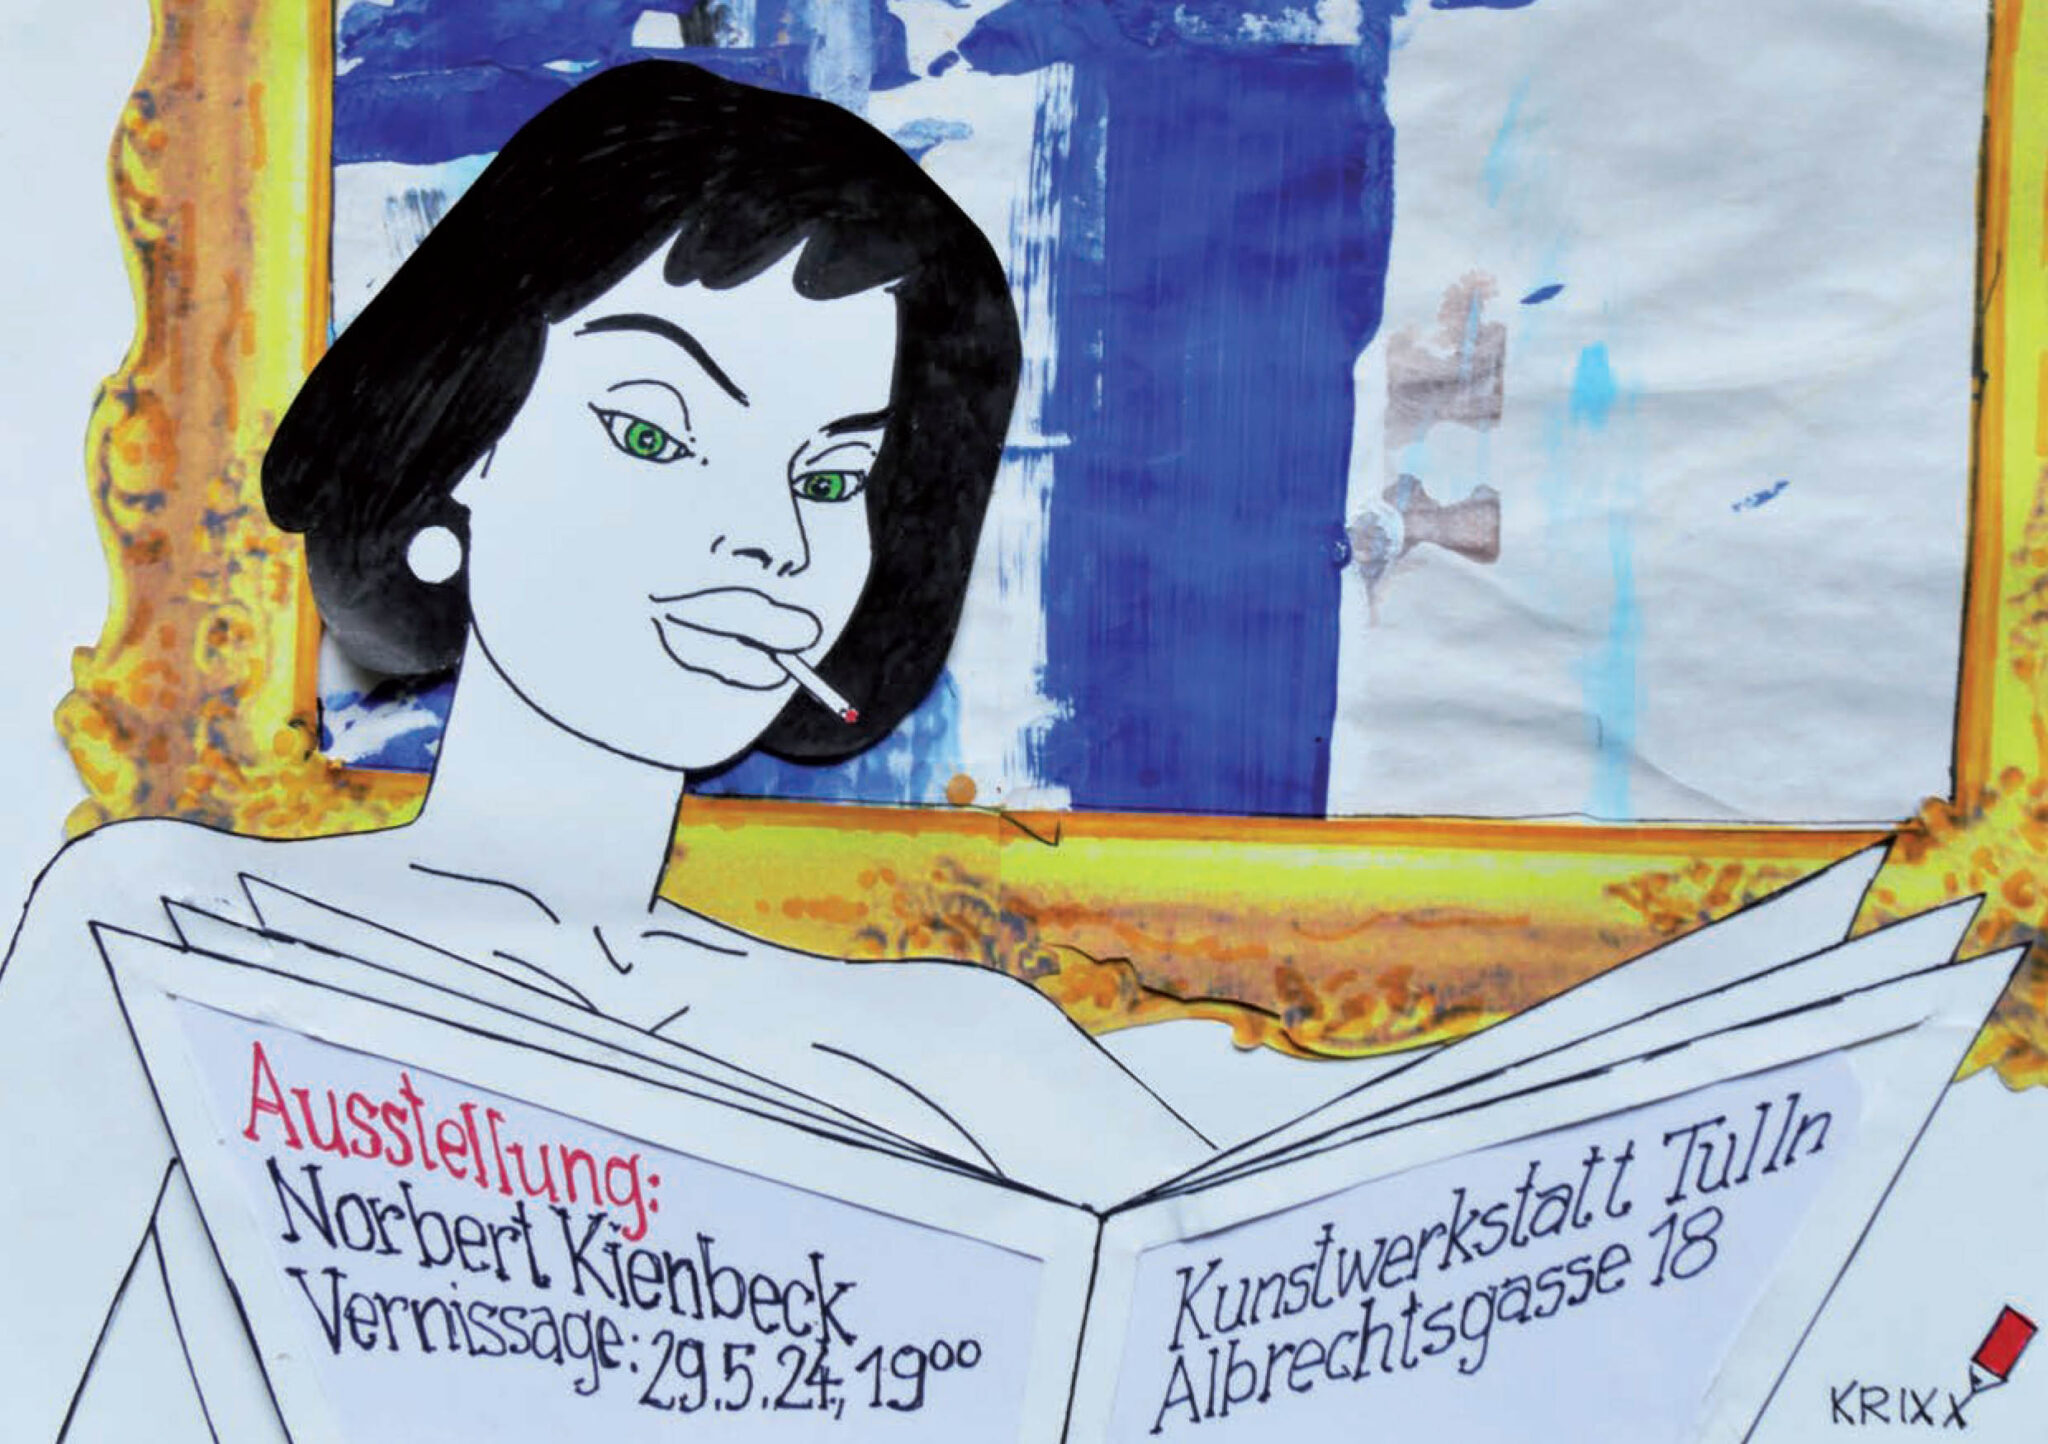 Ausstellung:
Norbert Kienbeck
Vernissage: 29.5.24, 19⁰⁰
Kunstwerkstatt Tulln
Albrechtsgasse 18
KRIXX